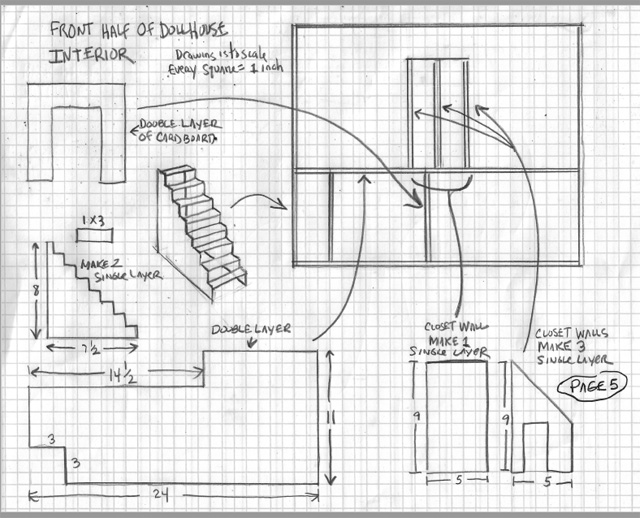 FRONT HALF OF DOLLHOUSE
INTERIOR
Drawing is to scale
Every Square = 1 inch
DOUBLE LAYER
OF CARDBOARD
1 X 3
MAKE 2
SINGLE LAYER
8
7 1/2
DOUBLE LAYER
14 1/2
11
3
3
24
CLOSET WALL
MAKE 1
SINGLE LAYER
9
5
CLOSET WALLS
MAKE 3
SINGLE LAYER
9
5
PAGE 5